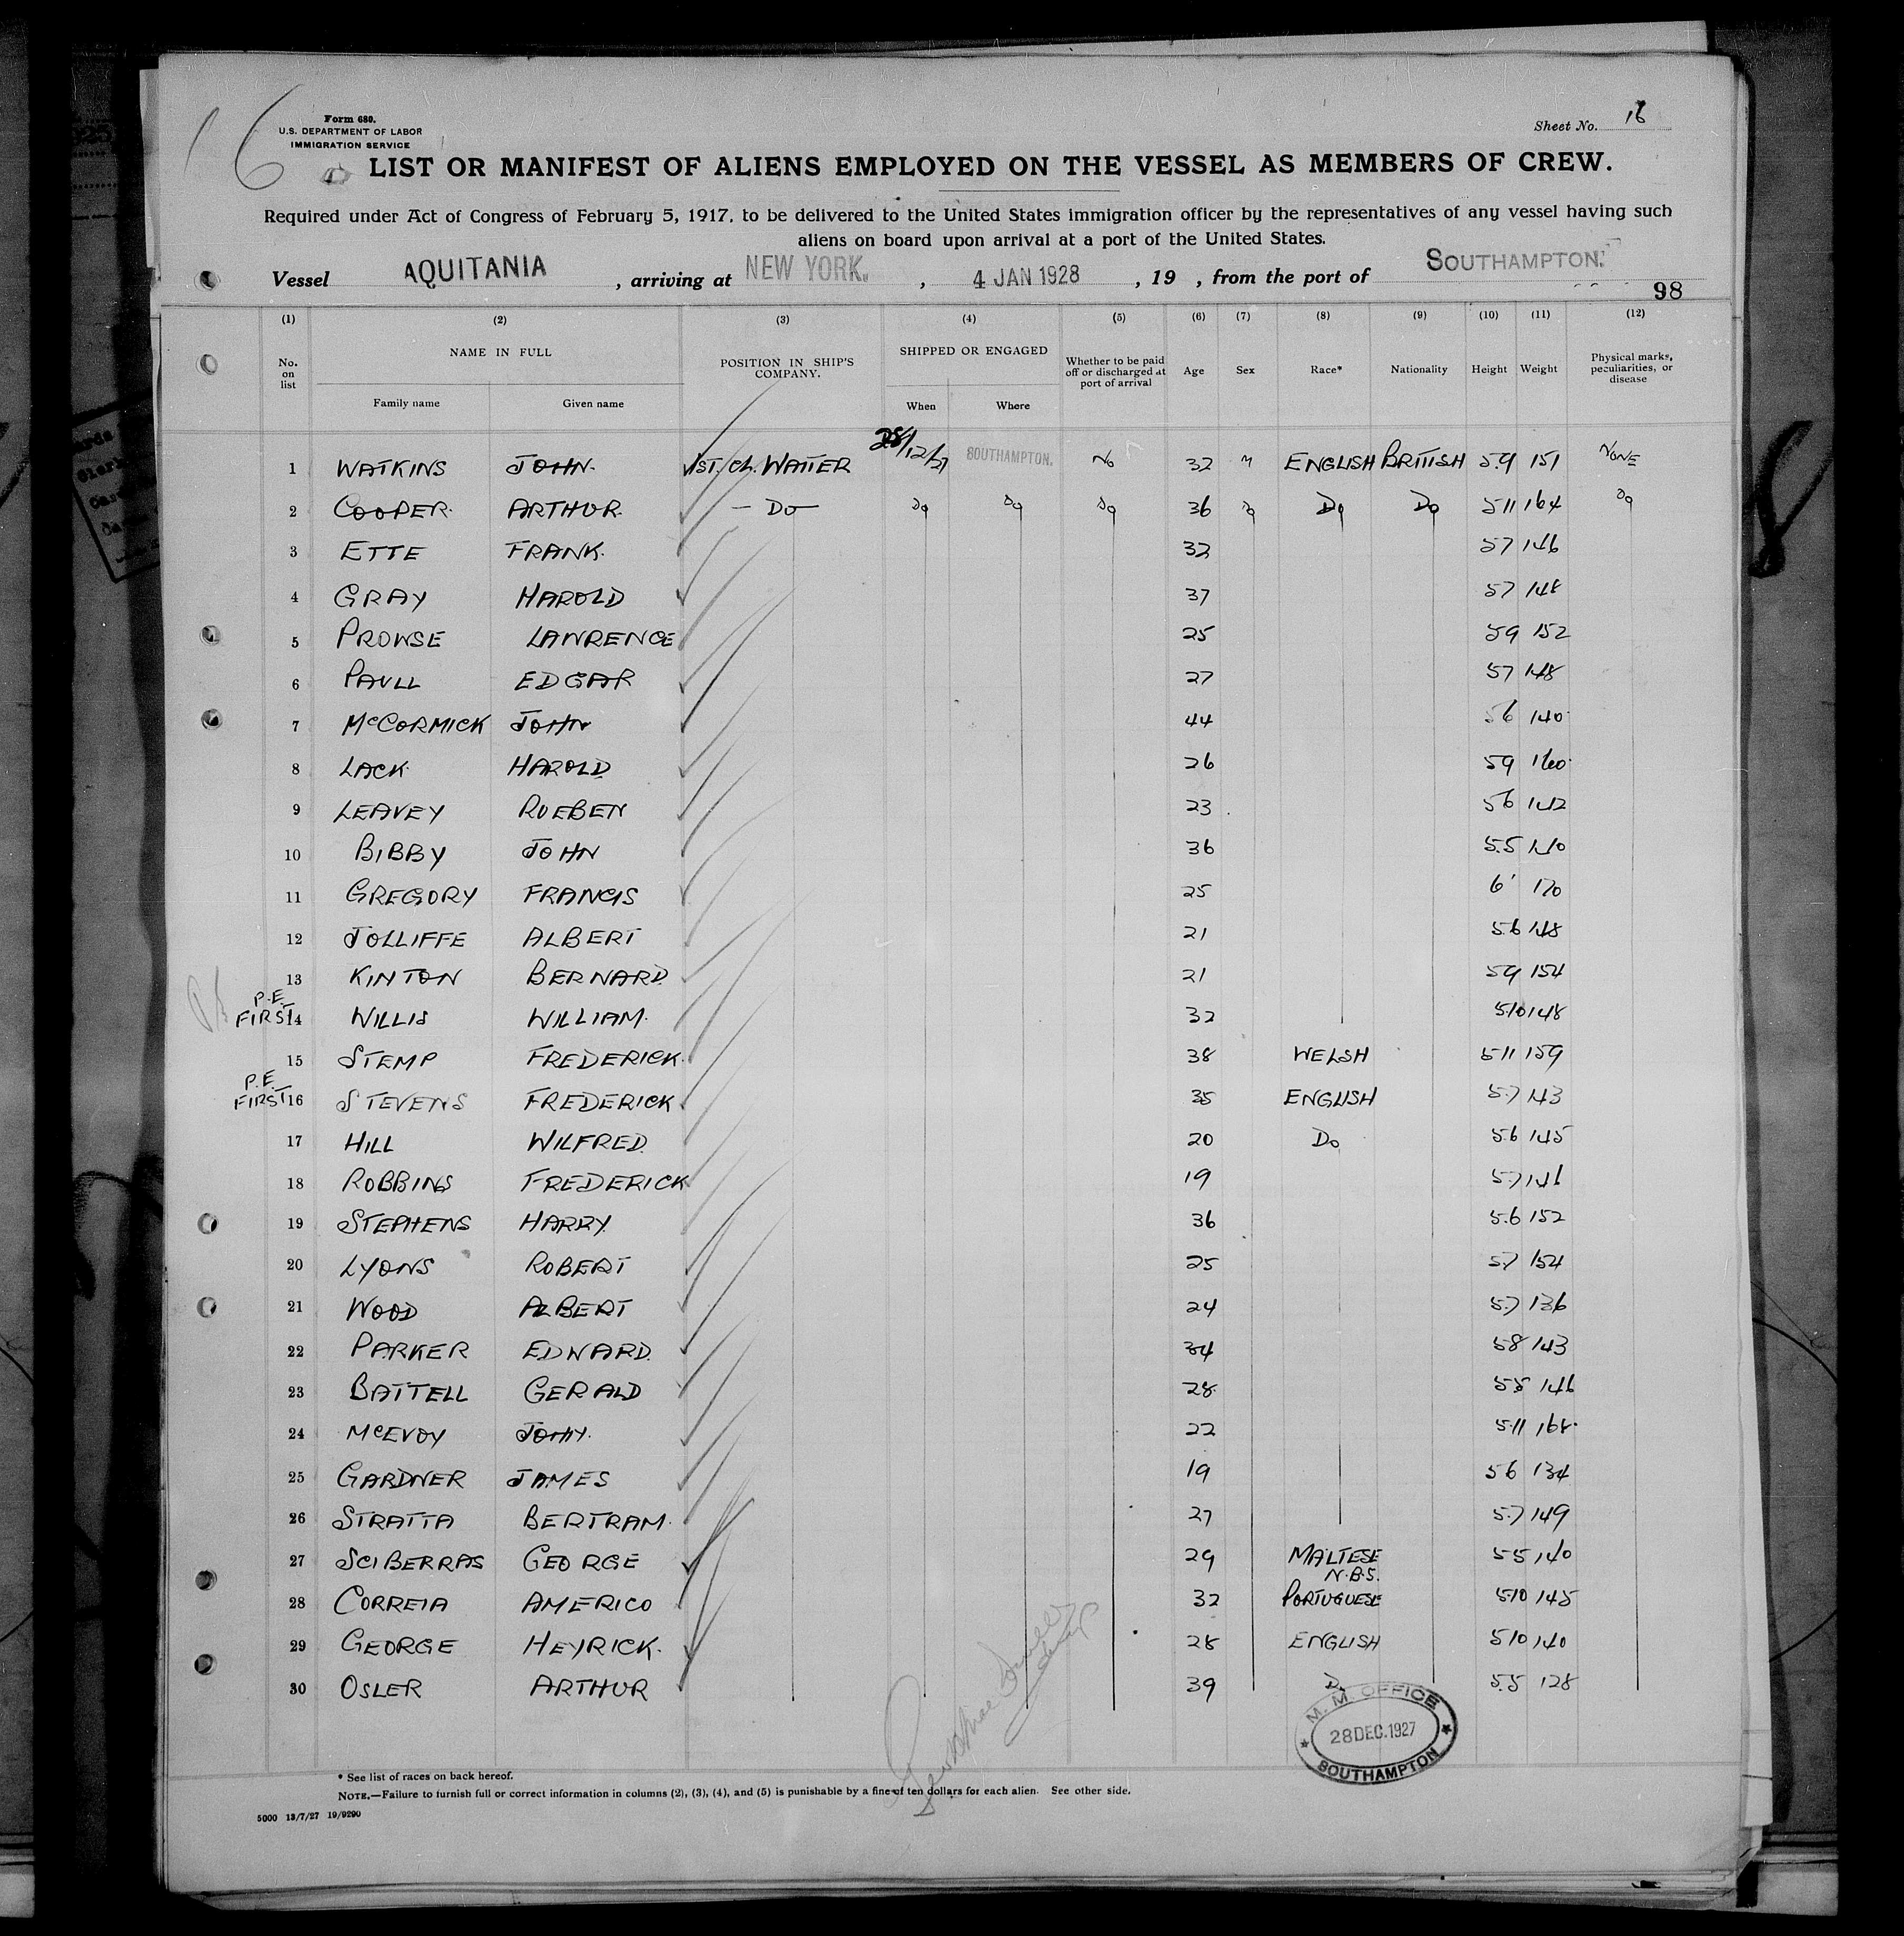 16
Form 680.
U.S. DEPARTMENT OF LABOR
IMMIGRATION SERVICE
Sheet No. 16
LIST OR MANIFEST OF ALIENS EMPLOYED ON THE VESSEL AS MEMBERS OF CREW.
Required under Act of Congress of February 5, 1917, to be delivered to the United States immigration officer by the representatives of any vessel having such
aliens on board upon arrival at a port of the United States.
Vessel AQUITANIA , arriving at NEW YORK. , 4 JAN 1928 , 19 , from the port of SOUTHAMPTON.
98
(1) (2) (3) (4) (5) (6) (7) (8) (9) (10) (11) (12)
No. on list NAME IN FULL POSITION IN SHIP'S COMPANY. SHIPPED OR ENGAGED Whether to be paid off or discharged at port of arrival Age Sex Race* Nationality Height Weight Physical marks, peculiarities, or disease
Family name Given name When Where
1 WATKINS JOHN. 1ST. CL. WAITER 28/12/27 SOUTHAMPTON. No 32 M ENGLISH BRITISH 5.9 151 NONE
2 COOPER. ARTHUR. — Do — Do Do Do 36 Do Do Do 511 164 Do
3 ETTE FRANK. 32 57 146
4 GRAY HAROLD 37 57 148
5 PROWSE LAWRENCE 25 59 152
6 PAULL EDGAR 27 57 148
7 McCORMICK JOHN 44 56 140
8 LACK HAROLD 26 59 160
9 LEAVEY RUEBEN 23 56 142
10 BIBBY JOHN 36 5.5 140
11 GREGORY FRANCIS 25 6' 170
12 JOLLIFFE ALBERT 21 5.6 148
13 KINTON BERNARD. 21 59 154
P.E. FIRST 14 WILLIS WILLIAM. 32 5.10 148
15 STEMP FREDERICK. 38 WELSH 511 159
P.E. FIRST 16 STEVENS FREDERICK. 35 ENGLISH 5.7 143
17 HILL WILFRED. 20 Do 5.6 145
18 ROBBINS FREDERICK 19 5.7 146
19 STEPHENS HARRY. 36 5.6 152
20 LYONS ROBERT 25 5.7 154
21 WOOD ALBERT 24 5.7 136
22 PARKER EDWARD. 34 58 143
23 BATTELL GERALD 28 5.8 146
24 McEVOY JOHN. 22 5.11 168
25 GARDNER JAMES 19 56 134
26 STRATTA BERTRAM. 27 5.7 149
27 SCIBERRAS GEORGE 29 MALTESE N.B.S. 55 140
28 CORREIA AMERICO 32 PORTUGUESE 5.10 145
29 GEORGE HEYRICK. 28 ENGLISH 510 140
30 OSLER ARTHUR 39 Do 5.5 128
M. M. OFFICE
28 DEC. 1927
SOUTHAMPTON
* See list of races on back hereof.
NOTE.—Failure to furnish full or correct information in columns (2), (3), (4), and (5) is punishable by a fine of ten dollars for each alien. See other side.
5000 13/7/27 19/9290